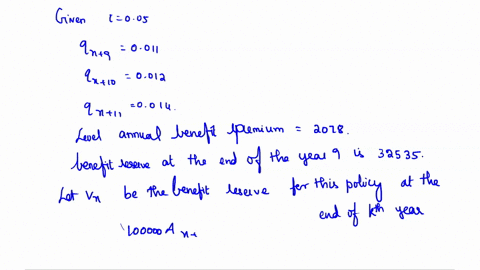 Given i=0.05
q x+9 = 0.011
q x+10 = 0.012
q x+11 = 0.014.
Level annual benefit premium = 2078.
benefit reserve at the end of the year 9 is 32535.
Let Vn be the benefit reserve for this policy at the
end of kth year
100000 A x+